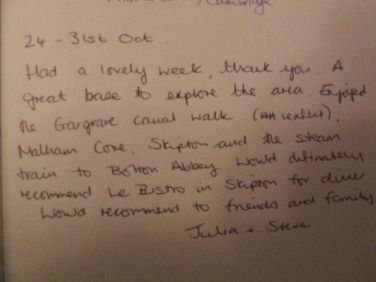 Cambridge
24 - 31st Oct
Had a lovely week, thank you. A
great base to explore the area. Enjoyed
the Gargrave canal walk (AA leaflet),
Malham Cove, Skipton and the steam
train to Bolton Abbey. Would definately
recommend Le Bistro in Skipton for diner
Would recommend to friends and family
Julia + Steve